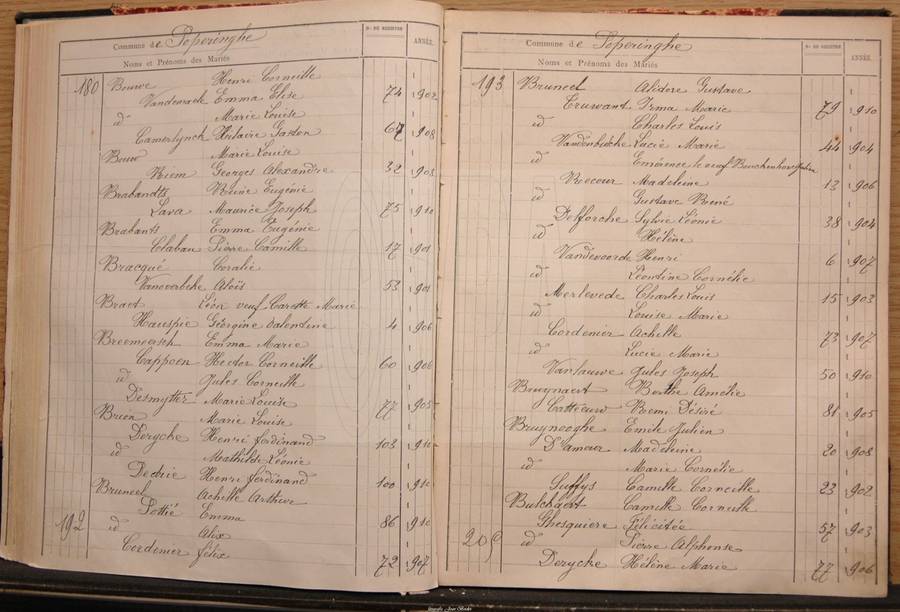 Commune de Poperinghe
Nos DE REGISTRE
ANNÉE.
Noms et Prénoms des Mariés
180 Bouve Henri Corneille
Vandewaele Emma Elise 74 1902
id Marie Louise
Camerlynck Hilaire Gaston 67 1908
Bouve Marie Louise
Riem Georges Alexandre 32 1903
Brabandts Reine Eugénie
Lava Maurice Joseph 75 1910
Brabants Emma Eugénie
Claban Pierre Camille 17 1901
Bracqué Coralie
Vanoverbeke Aloïs 53 1901
Braet Léon veuf Carette Marie
Hauspie Géorgine Valentine 4 1906
Breemeersch Emma Marie
Cappoen Hector Corneille 60 1906
id Jules Corneille
Desmytter Marie Louise 77 1905
Brien Marie Louise
Derycke Henri ferdinand 103 1910
id Mathilde Léonie
Dedrie Henri ferdinand 100 1910
Bruneel Achille Arthur
Lottié Emma 86 1910
192 id Alix
Cordenier félix 72 1907
Commune de Poperinghe
Nos DE REGISTRE
ANNÉE.
Noms et Prénoms des Mariés
193 Bruneel Alidore Gustave
Cruwant Irma Marie 79 1910
id Charles Louis
Vandenbussche Lucie Marie 44 1904
id Emérence
Recour Madeleine 13 1906
id Gustave René
Delforche Sylvie Léonie 38 1904
id Hélène
Vandevoorde Henri 6 1907
id Léontine Cornélie
Merlevede Charles Louis 15 1903
id Louise Marie
Cordenier Achille 73 1907
id Lucie Marie
Vanlauwe Jules Joseph 50 1910
Bruynaert Berthe Amélie
Catteeuw Remi Désiré 81 1905
Bruyneoghe Emile Julien
D'amour Madeleine 20 1908
id Marie Cornélie
Suffys Camille Corneille 23 1902
Bulckaert Camille Corneille
Ghesquiere Félicitée 57 1903
205 id Pierre Alphonse
Derycke Hélène Marie 77 1906